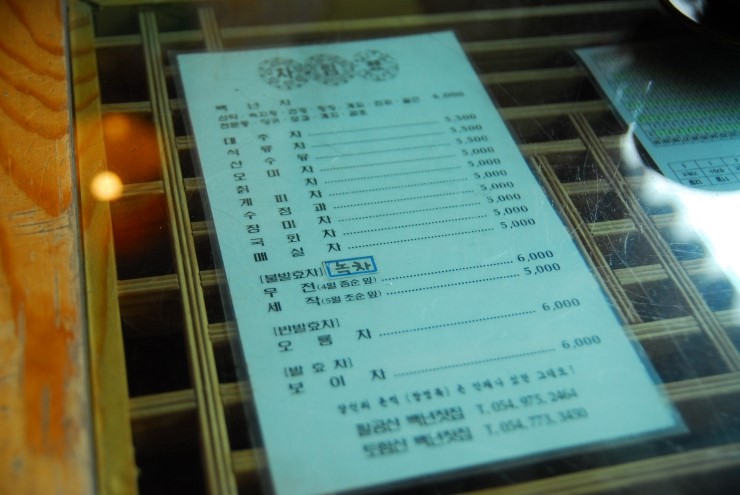 차림표
백년차 6,000
대추차 5,500
석류차 5,500
산수유 5,500
오미자 5,000
칡차 5,000
계피차 5,000
수정과 5,000
장미차 5,000
국화차 5,000
매실차 5,000
[불발효차] 녹차
우전(4월 중순 잎) 6,000
세작(5월 초순 잎) 5,000
[반발효차]
오룡차 6,000
[발효차]
보이차 6,000
당신의 흔적 (방명록) 은 언제나
팔공산 백년찻집 T. 054. 975. 2464
토함산 백년찻집 T. 054. 773. 3450